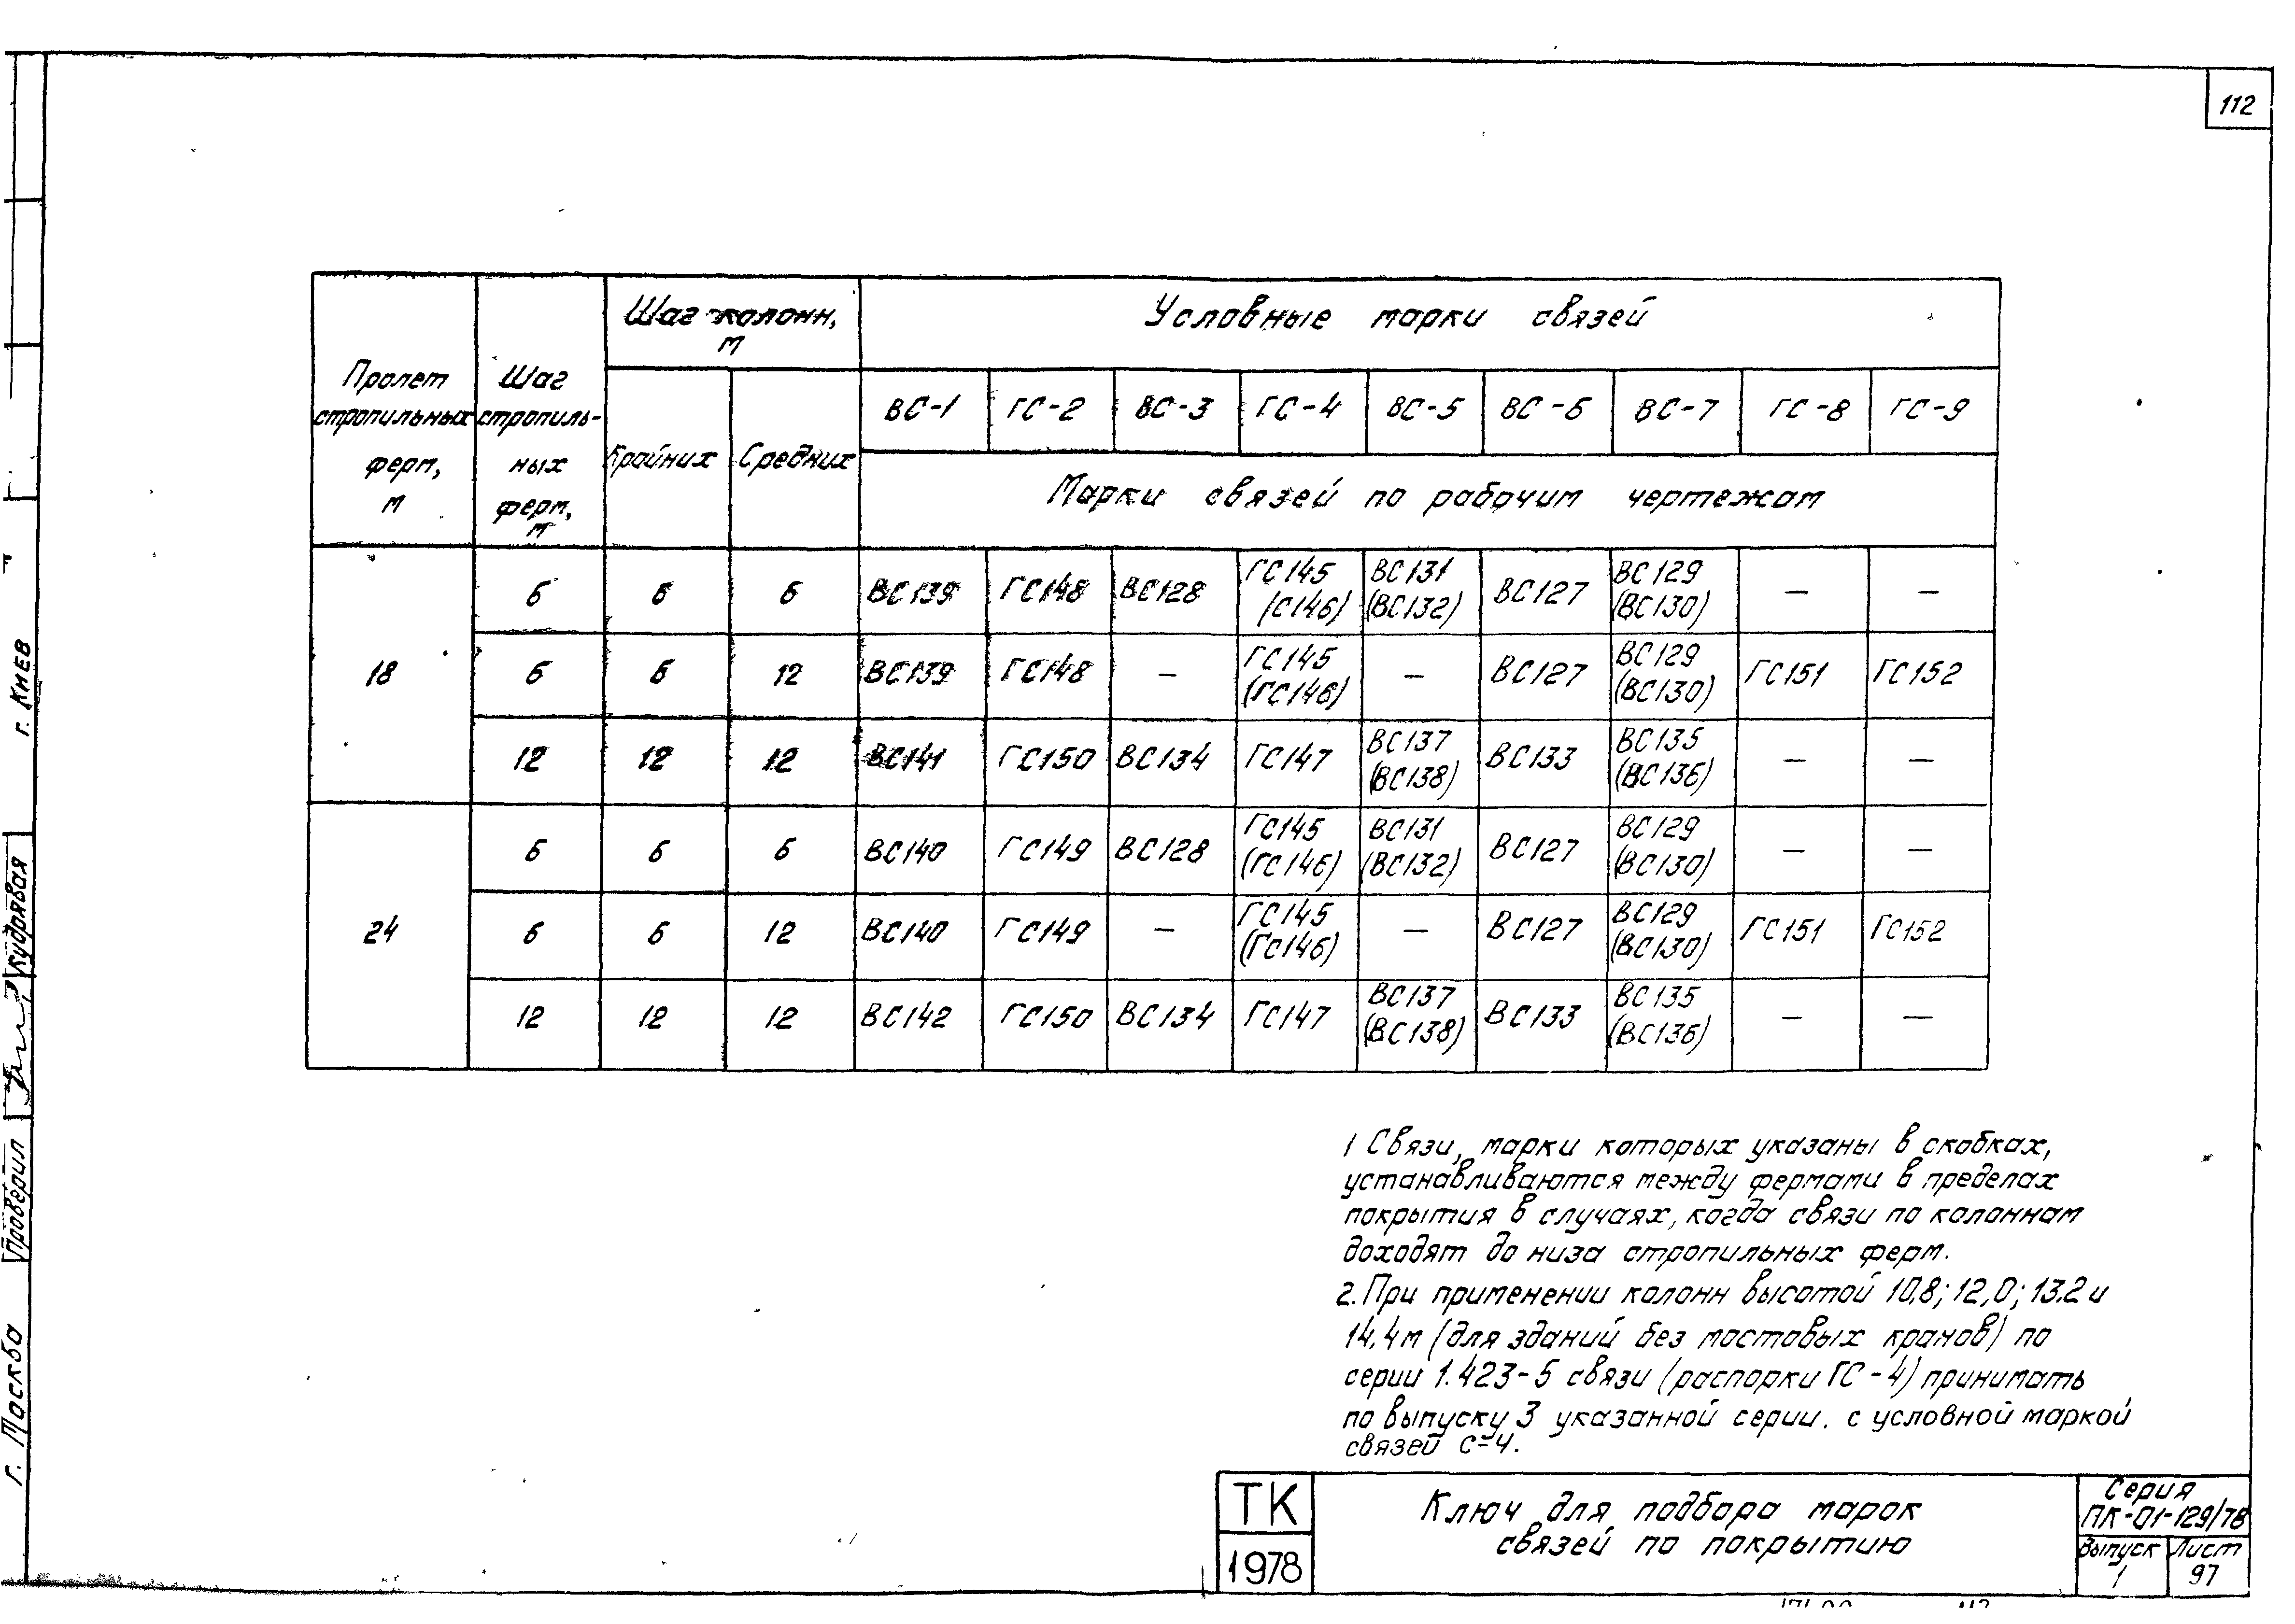 112
Пролет стропильных ферм, м
Шаг стропиль-ных ферм, м
Шаг колонн, м
Крайних
Средних
Условные марки связей
ВС-1 ГС-2 ВС-3 ГС-4 ВС-5 ВС-6 ВС-7 ГС-8 ГС-9
Марки связей по рабочим чертежам
18
6 6 6 ВС139 ГС148 ВС128 ГС145 (С146) ВС131 (ВС132) ВС127 ВС129 (ВС130) — —
6 6 12 ВС139 ГС148 — ГС145 (ГС146) — ВС127 ВС129 (ВС130) ГС151 ГС152
12 12 12 ВС141 ГС150 ВС134 ГС147 ВС137 (ВС138) ВС133 ВС135 (ВС136) — —
24
6 6 6 ВС140 ГС149 ВС128 ГС145 (ГС146) ВС131 (ВС132) ВС127 ВС129 (ВС130) — —
6 6 12 ВС140 ГС149 — ГС145 (ГС146) — ВС127 ВС129 (ВС130) ГС151 ГС152
12 12 12 ВС142 ГС150 ВС134 ГС147 ВС137 (ВС138) ВС133 ВС135 (ВС136) — —
1 Связи, марки которых указаны в скобках,
устанавливаются между фермами в пределах
покрытия в случаях, когда связи по колоннам
доходят до низа стропильных ферм.
2. При применении колонн высотой 10,8; 12,0; 13.2 и
14,4м (для зданий без мостовых кранов) по
серии 1.423-5 связи (распорки ГС-4) принимать
по выпуску 3 указанной серии. с условной маркой
связей С-4.
ТК
1978
Ключ для подбора марок
связей по покрытию
Серия
ПК-01-129/78
Выпуск
1
Лист
97
г. Киев
Кудрявая
Проверил
г. Москва